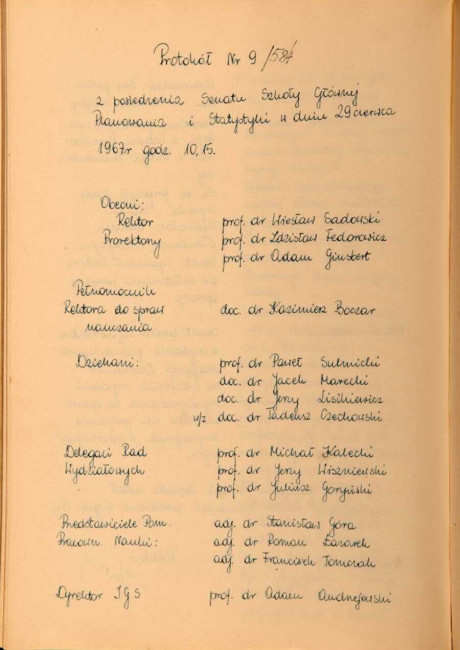 Protokół Nr 9/584
z posiedzenia Senatu Szkoły Głównej
Planowania i Statystyki w dniu 29 czerwca
1967r godz. 10,15.
Obecni:
Rektor prof. dr Wiesław Sadowski
Prorektorzy prof. dr Zdzisław Fedorowicz
prof. dr Adam Ginsbert
Pełnomocnik
Rektora do spraw doc. dr Kazimierz Boczar
nauczania
Dziekani: prof. dr Paweł Sulmicki
doc. dr Jacek Marecki
doc. dr Jerzy Lisikiewicz
w/z doc. dr Tadeusz Czechowski
Delegaci Rad prof. dr Michał Kalecki
Wydziałowych prof. dr Jerzy Wiszniewski
prof. dr Juliusz Goryński
Przedstawiciele Pom. adj. dr Stanisław Góra
Pracown. Nauki: adj. dr Roman Łazarek
adj. dr Franciszek Tomczak
Dyrektor IGS prof. dr Adam Andrzejewski